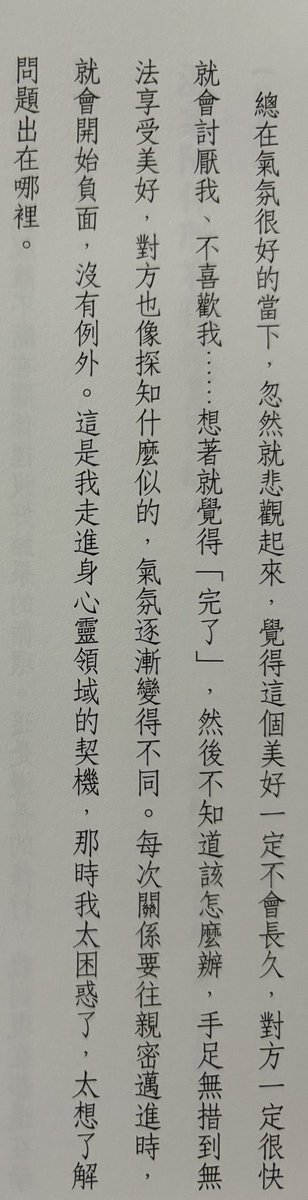 總在氣氛很好的當下，忽然就悲觀起來，覺得這個美好一定不會長久，對方一定很快
就會討厭我、不喜歡我……想著就覺得「完了」，然後不知道該怎麼辦，手足無措到無
法享受美好，對方也像探知什麼似的，氣氛逐漸變得不同。每次關係要往親密邁進時，
就會開始負面，沒有例外。這是我走進身心靈領域的契機，那時我太困惑了，太想了解
問題出在哪裡。